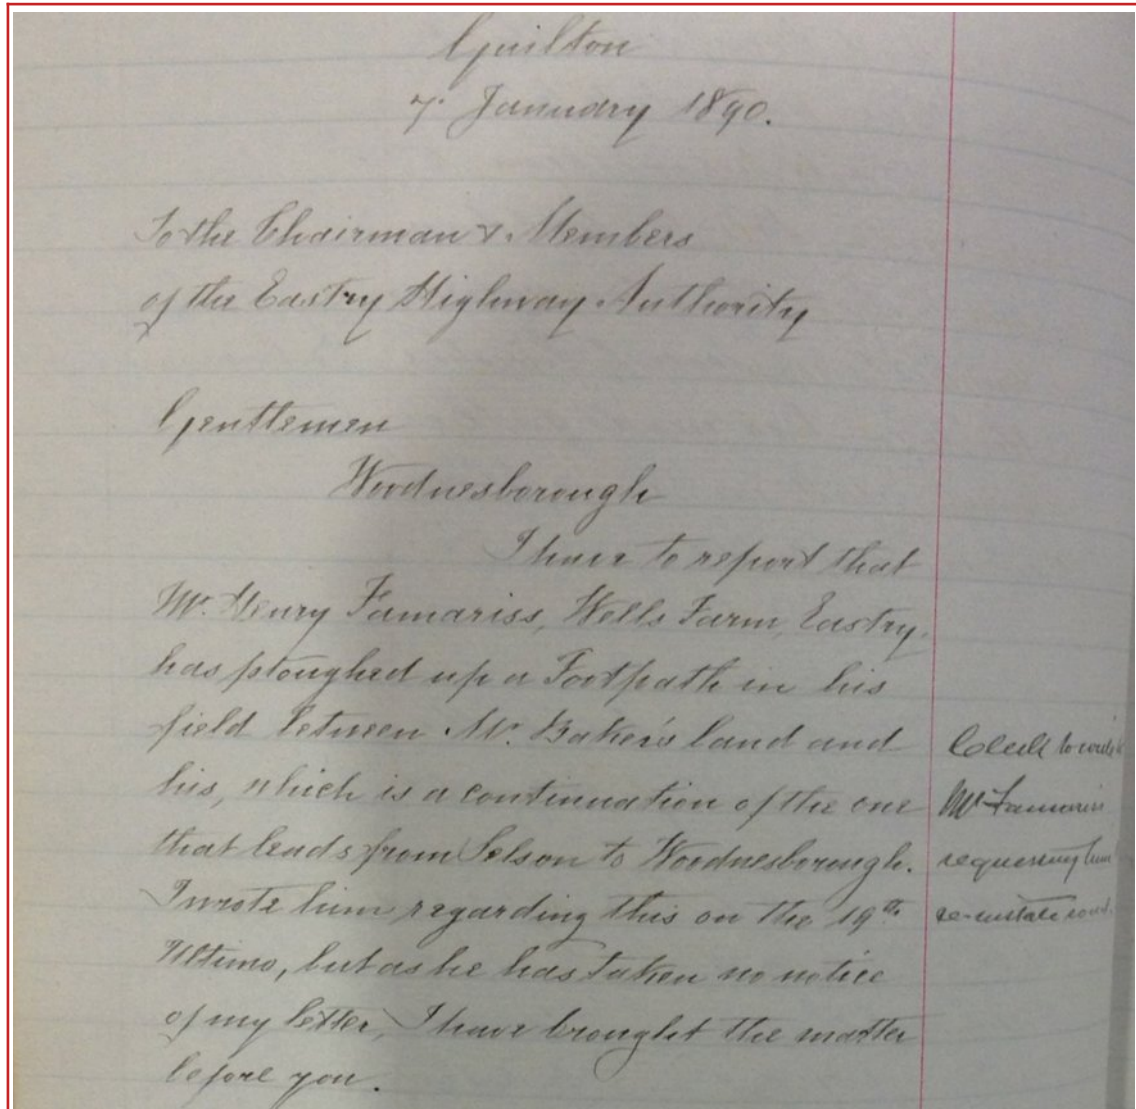 Guilton
7. January 1890.
To the Chairman & Members
of the Eastry Highway Authority
Gentlemen
Woodnesborough
I have to report that
Mr. Henry Famariss, Wells Farm, Eastry,
has ploughed up a Footpath in his
field between Mr. Baker's land and
his, which is a continuation of the one
that leads from Selson to Woodnesborough.
I wrote him regarding this on the 19th
Ultimo, but as he has taken no notice
of my letter, I have brought the matter
before you.
Clerk to write
Mr Famariss
requesting him
re-instate